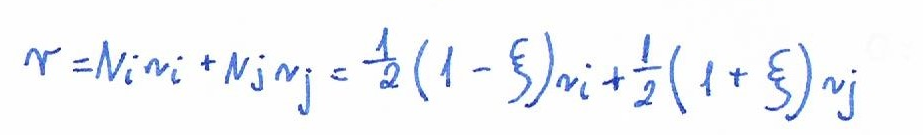 r = N_i r_i + N_j r_j = \frac{1}{2}(1 - ξ) r_i + \frac{1}{2}(1 + ξ) r_j